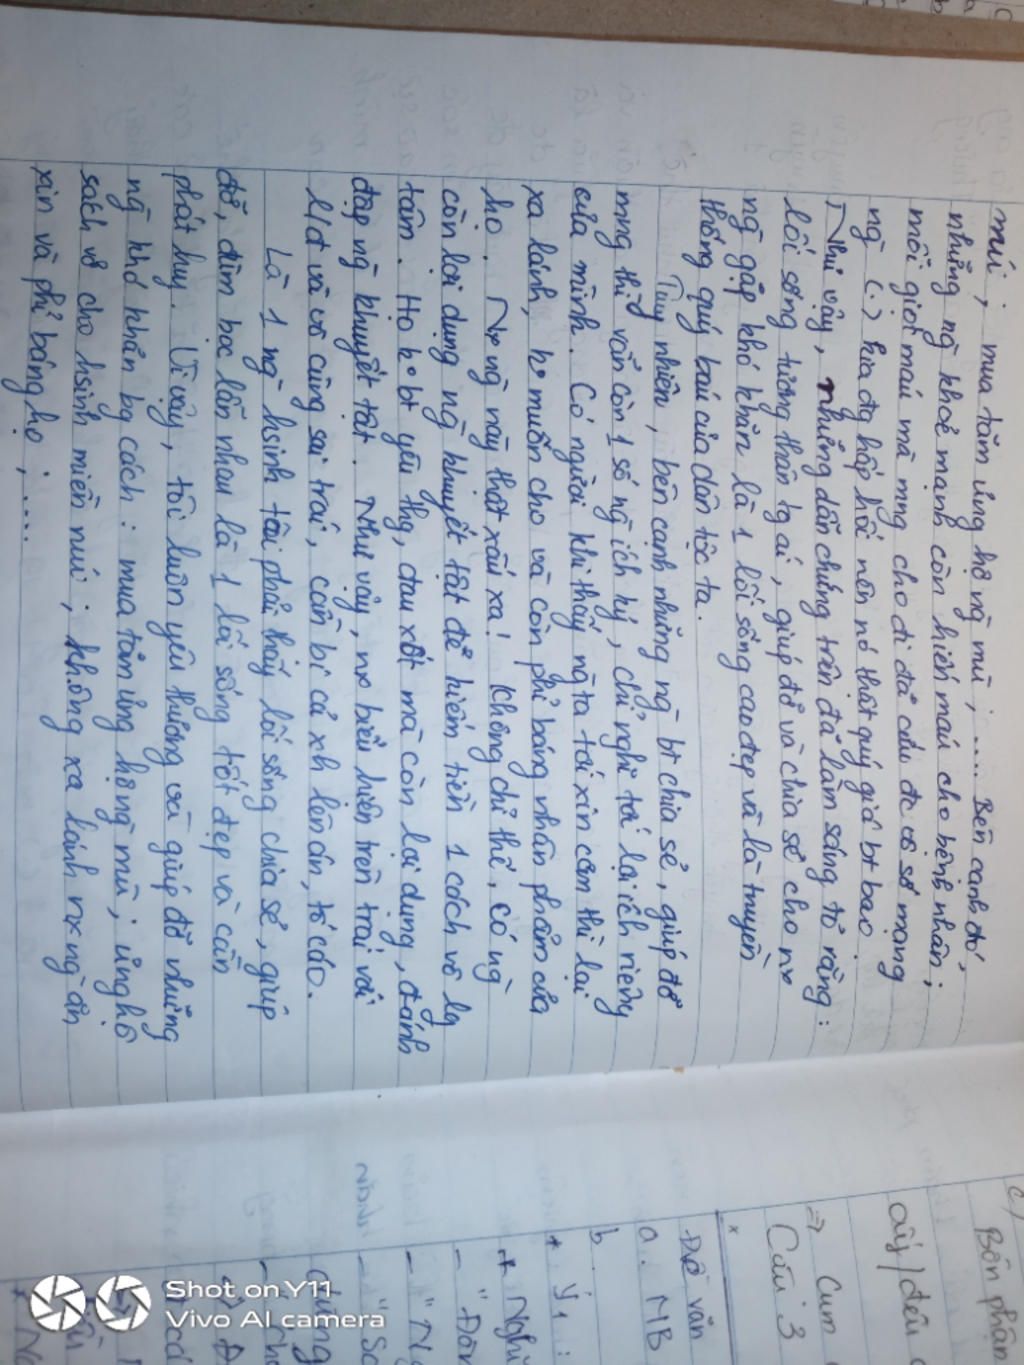 núi ; mua tăm ủng hộ ng mù ; ..... Bên cạnh đó,
những ng khoẻ mạnh còn hiến máu cho bệnh nhân ;
mỗi giọt máu mà mng cho đi đã cứu đc vô số mạng
ng (.) hira đg hấp hối nên nó thật quý giá bt bao
Như vậy, những dẫn chứng trên đã làm sáng tỏ rằng :
lối sống tương thân tg ái, giúp đỡ và chia sẻ cho nx
ng gặp khó khăn là 1 lối sống cao đẹp và là truyền
thống quý báu của dân tộc ta.
Tuy nhiên, bên cạnh những ng bt chia sẻ, giúp đỡ
mng thì vẫn còn 1 số ng ích kỷ, chỉ nghĩ tới lợi ích riêng
của mình. Có người khi thấy ng ta tới xin cơm thì lại
xa lánh, ko muốn cho và còn phỉ báng nhân phẩm của
họ. Nx ng này thật xấu xa! Không chỉ thế, có ng
còn lợi dụng ng khuyết tật để kiếm tiền 1 cách vô lg
tâm. Họ ko bt yêu thg, đau xót mà còn lợi dụng, đánh
đập ng khuyết tật. Như vậy, nx biểu hiện trên trái với
l/đ và vô cùng sai trái, cần bị cả xh lên án, tố cáo.
Là 1 ng hsinh tôi phải thấy lối sống chia sẻ, giúp
đỡ, đùm bọc lẫn nhau là 1 lối sống tốt đẹp và cần
phát huy. Vì vậy, tôi luôn yêu thương và giúp đỡ những
ng khó khăn bg cách : mua tăm ủng hộ ng mù ; ủng hộ
sách vở cho hsinh miền núi ; không xa lánh nx ng ăn
xin và phỉ báng họ ; ....
c)
Bổn phận
ấy / đều
⇒ Cụm
Câu 3
×
Đề văn
a. MB
b.
+ Ý1 :
+ Nghĩ
Shot on Y11
Vivo AI camera